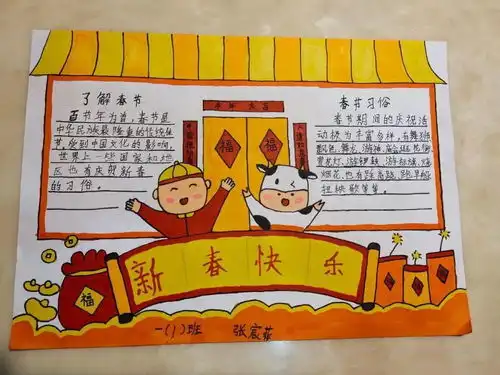 了解春节
百节年为首,春节是
中华民族最隆重的传统佳
节,受到中国文化的影响,
世界上一些国家和地
区也有庆贺新春
的习俗。
春节习俗
春节期间的庆祝活
动极为丰富多样,有舞狮
飘色、舞龙、游神、庙会、逛花街
赏花灯、游锣鼓、游标旗、烧
烟花、也有踩高跷、跑旱船
扭秧歌等等。
福
福
福
新春快乐
一(1)班